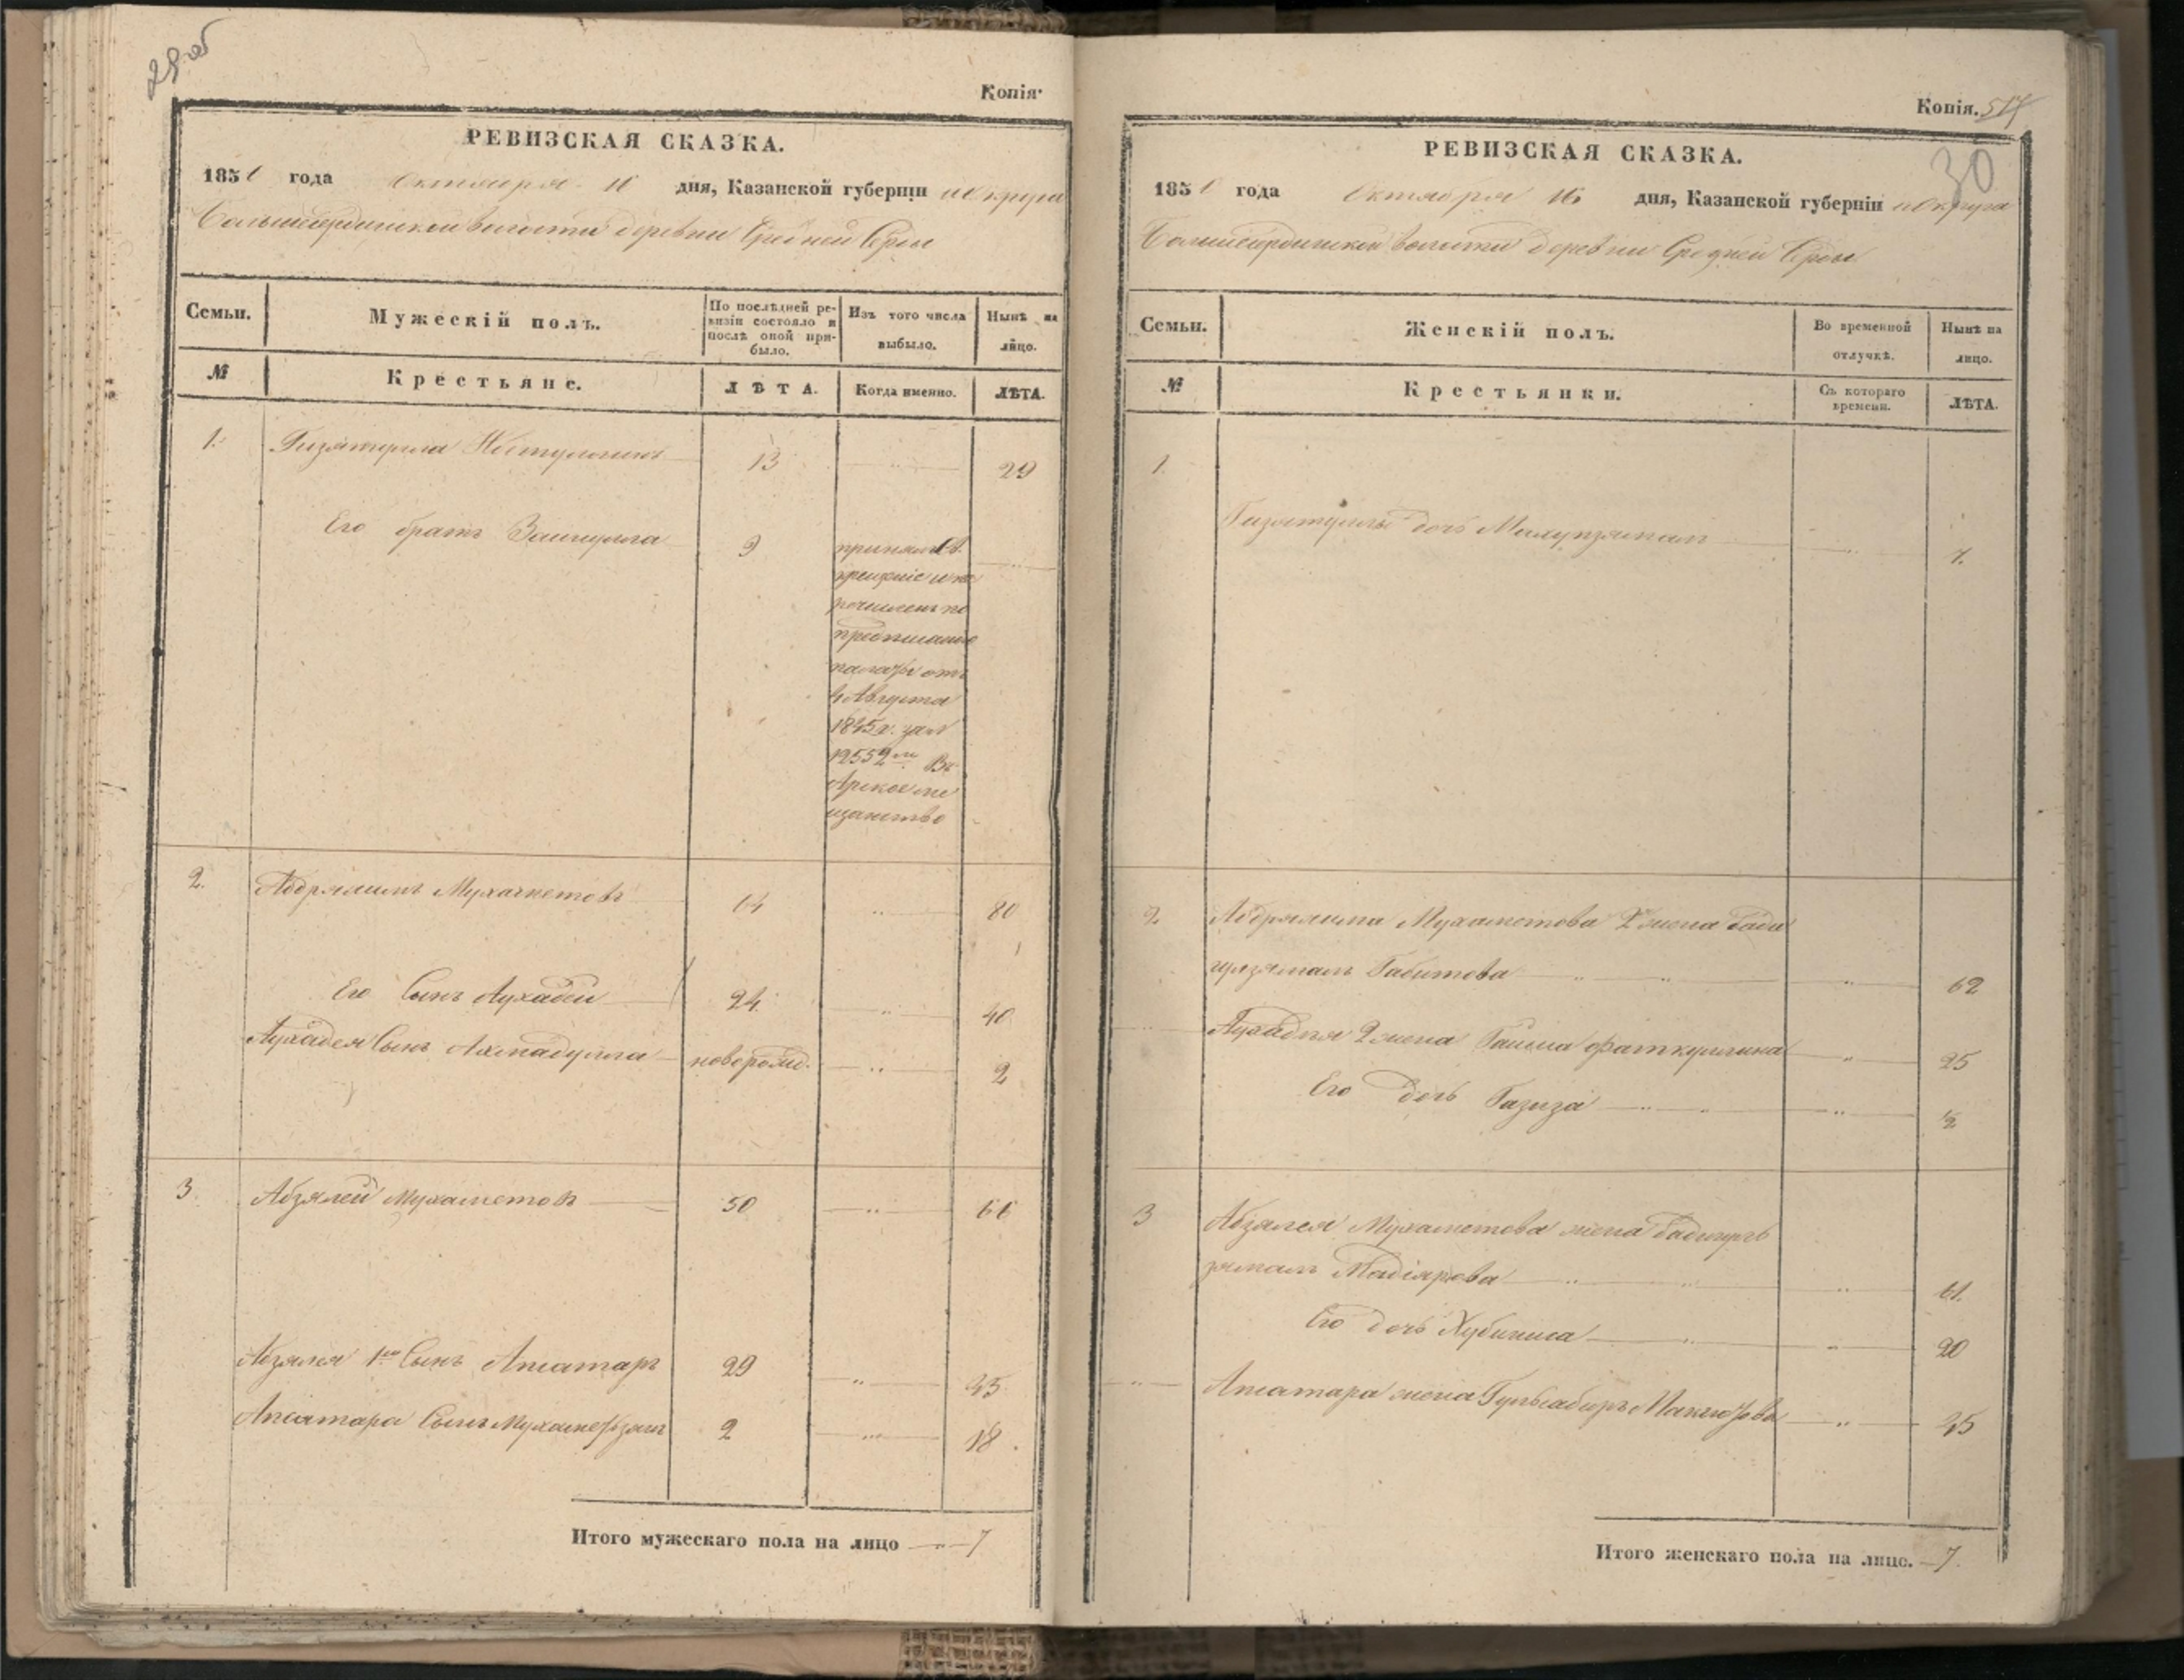 29об
Копія.
РЕВИЗСКАЯ СКАЗКА.
1850 года Октября 16 дня, Казанской губерніи и Округа
Большесердинской волости деревни Средней Серды
Семьи. Мужескій полъ. По послѣдней ре-
визіи состояло и
послѣ оной при-
было. Изъ того числа
выбыло. Нынѣ на
лицо.
№ Крестьяне. ЛѢТА. Когда именно. ЛѢТА.
1. Гизятулла 13 29
Его братъ Зайнулла 9 принялъ Св.
крещеніе и пе
речисленъ по
предписанію
палаты отъ
4 Августа
1845 г. за №
12552мъ Въ
Арское ме
щанство
2. Абдрялимъ Мухаметовъ 64 80
Его Сынъ Аухадей 24 40
Аухадея Сынъ Ахмадулла новорожд. 2
3 Абзялей Мухаметовъ 50 66
Абзялея 1й Сынъ Апсатаръ 29 45
Апсатара Сынъ Мухаметзянъ 2 18.
Итого мужескаго пола на лицо 7
Копія. 517
30
РЕВИЗСКАЯ СКАЗКА.
1850 года Октября 16 дня, Казанской губерніи и Округа
Большесердинской волости деревни Средней Серды
Семьи. Женскій полъ. Во временной
отлучкѣ. Нынѣ на
лицо.
№ Крестьянки. Съ котораго
времени. ЛѢТА.
1.
Гизятуллы дочь 7.
2 Абдрялима Мухаметова 2 жена Бади
гулзямалъ Габитова 62
Аухадея 2 жена Фаткуллина 25
Его дочь Газиза ½
3 Абзялея Мухаметова жена Бадигуль
зямалъ Надіярова 61.
Его дочь Хубиниса 20
Апсатара жена 45
Итого женскаго пола на лицо. 7.